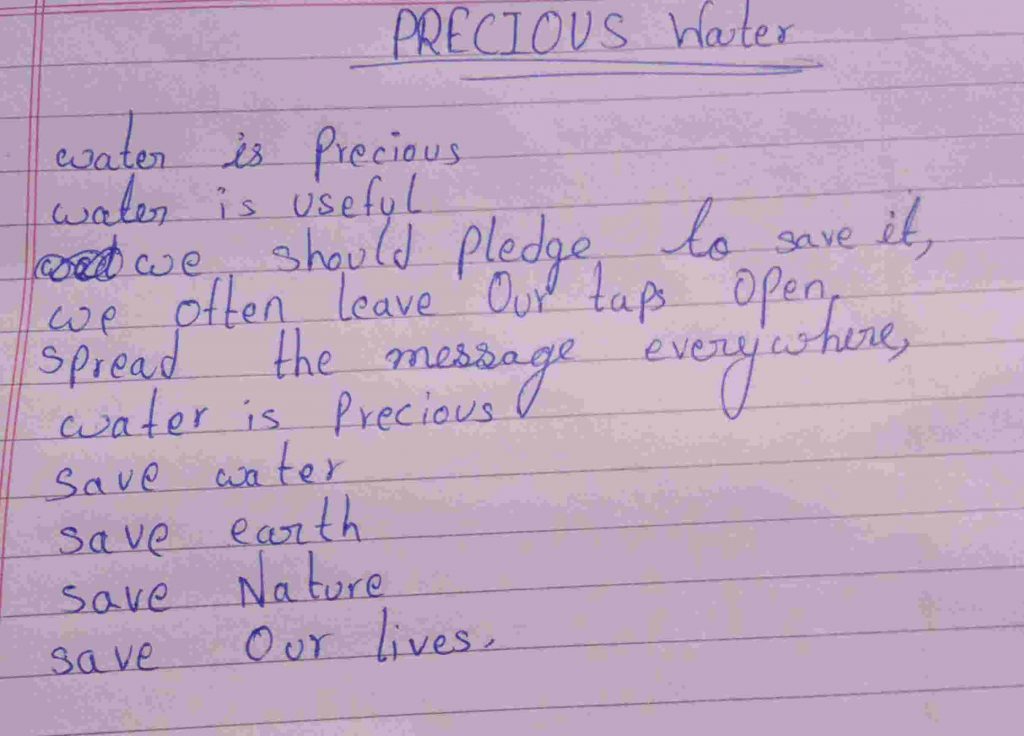 PRECIOUS Water
water is Precious
water is useful
we should pledge to save it,
we often leave Our taps Open,
spread the message everywhere,
water is Precious
save water
save earth
save Nature
save Our lives.